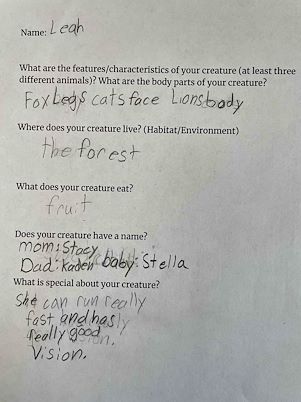 Name: Leah
What are the features/characteristics of your creature (at least three
different animals)? What are the body parts of your creature?
Fox Legs cats face Lions body
Where does your creature live? (Habitat/Environment)
the forest
What does your creature eat?
fruit
Does your creature have a name?
mom: Stacy
Dad: Kaden baby: Stella
What is special about your creature?
She can run really
fast and has
really good
Vision.